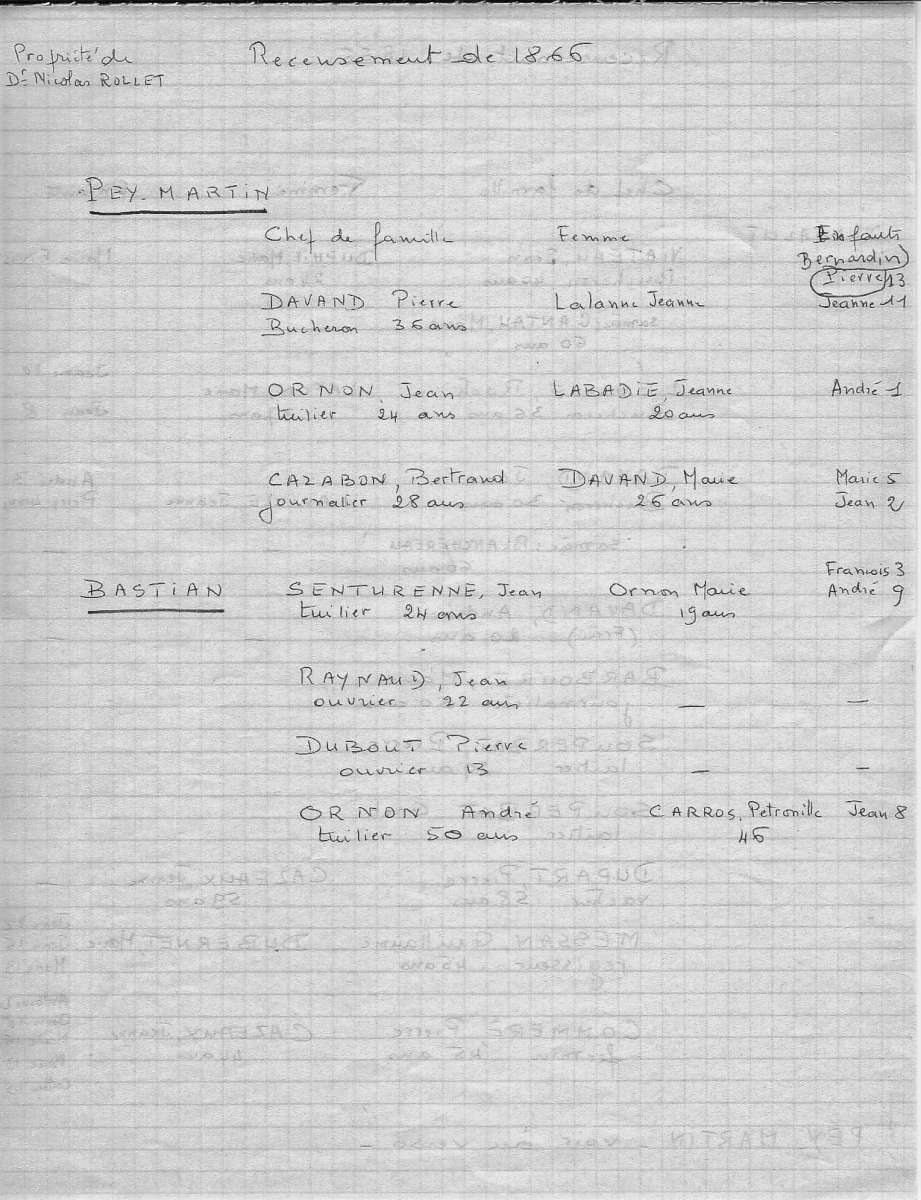 Propriété de
Dr Nicolas ROLLET
Recensement de 1866
PEY-MARTIN
Chef de famille Femme Enfants
Bernardin
Pierre 13
DAVAND Pierre Lalanne Jeanne Jeanne 11
Bucheron 36 ans
ORNON, Jean LABADIE, Jeanne André 1
tuilier 24 ans 20 ans
CAZABON, Bertrand DAVAND, Marie Marie 5
journalier 28 ans 26 ans Jean 2
Francois 3
BASTIAN SENTURENNE, Jean Ornon Marie André 9
tuilier 24 ans 19 ans
RAYNAUD, Jean
ouvrier 22 ans — —
DUBOUT Pierre
ouvrier 13 — —
ORNON André CARROS, Petronille Jean 8
tuilier 50 ans 46